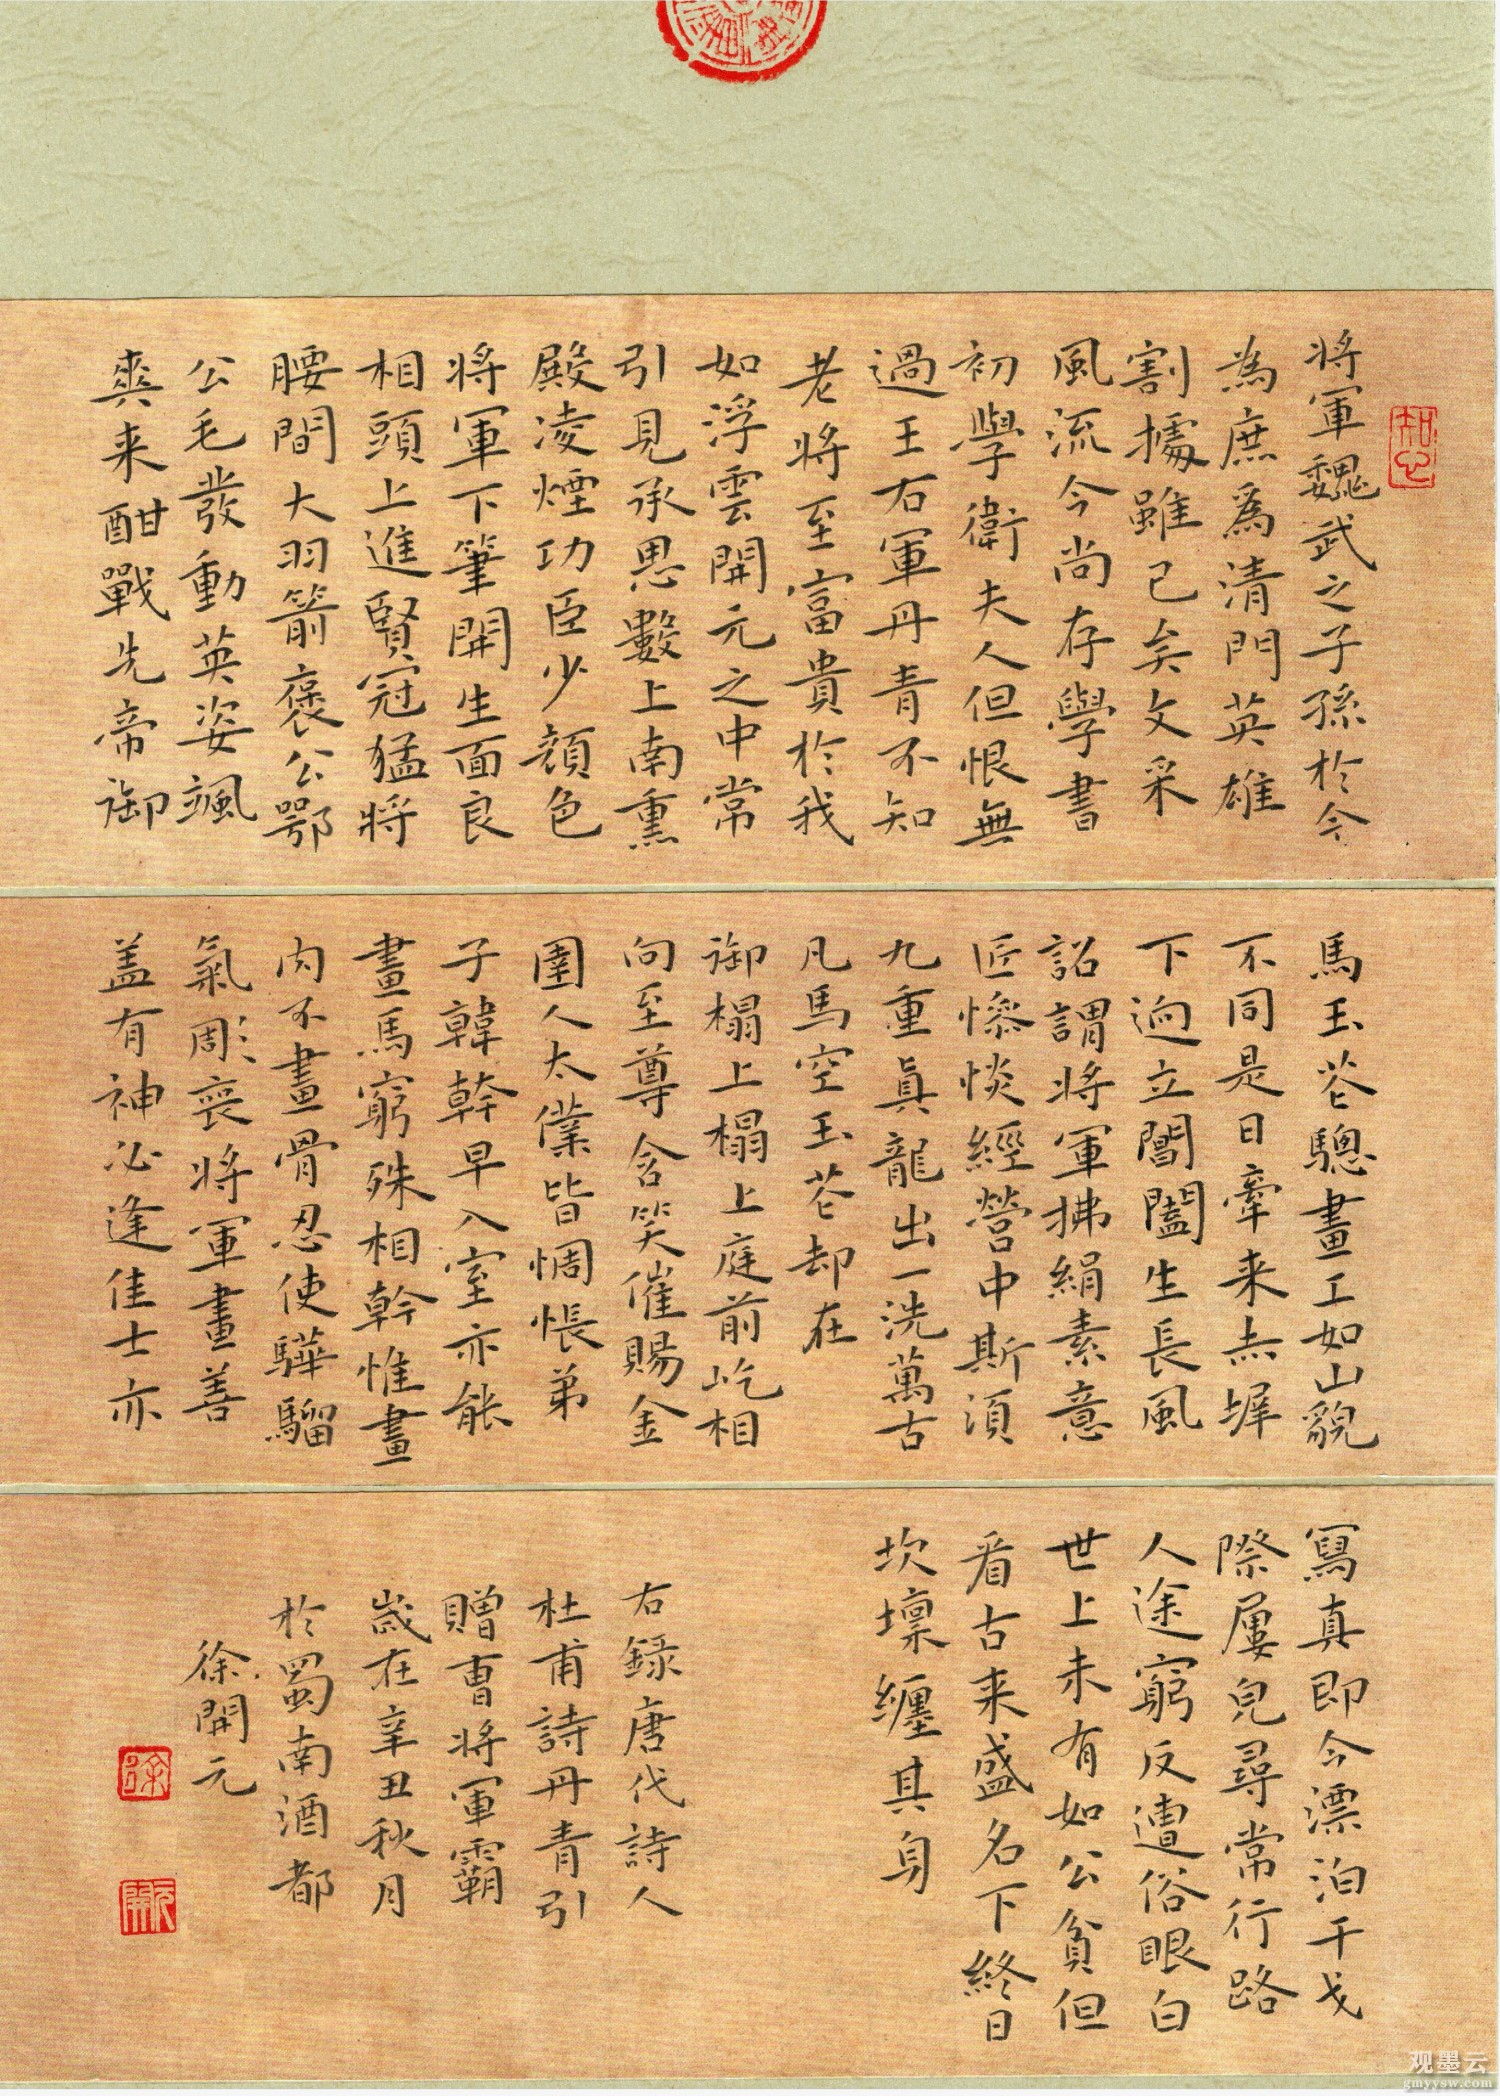 将軍魏武之子孫於今
為庶為清門英雄
割據雖已矣文采
風流今尚存學書
初學衛夫人但恨無
過王右軍丹青不知
老将至富貴於我
如浮雲開元之中常
引見承恩數上南熏
殿凌煙功臣少顔色
将軍下筆開生面良
相頭上進賢冠猛将
腰間大羽箭褒公鄂
公毛發動英姿颯
爽来酣戰先帝御
馬玉花驄畫工如山貌
不同是日牽来赤墀
下迥立閶闔生長風
詔謂将軍拂絹素意
匠慘惔經營中斯須
九重真龍出一洗萬古
凡馬空玉花却在
御榻上榻上庭前屹相
向至尊含笑催賜金
圉人太僕皆惆悵弟
子韓幹早入室亦能
畫馬窮殊相幹惟畫
肉不畫骨忍使驊騮
氣彫喪将軍畫善
盖有神必逢佳士亦
寫真即今漂泊干戈
際屢皃尋常行路
人途窮反遭俗眼白
世上未有如公貧但
看古来盛名下終日
坎壈纏其身
右録唐代詩人
杜甫詩丹青引
贈曹将軍霸
歲在辛丑秋月
於蜀南酒都
徐開元
知心
徐
開元
观墨云
gmyysw.com